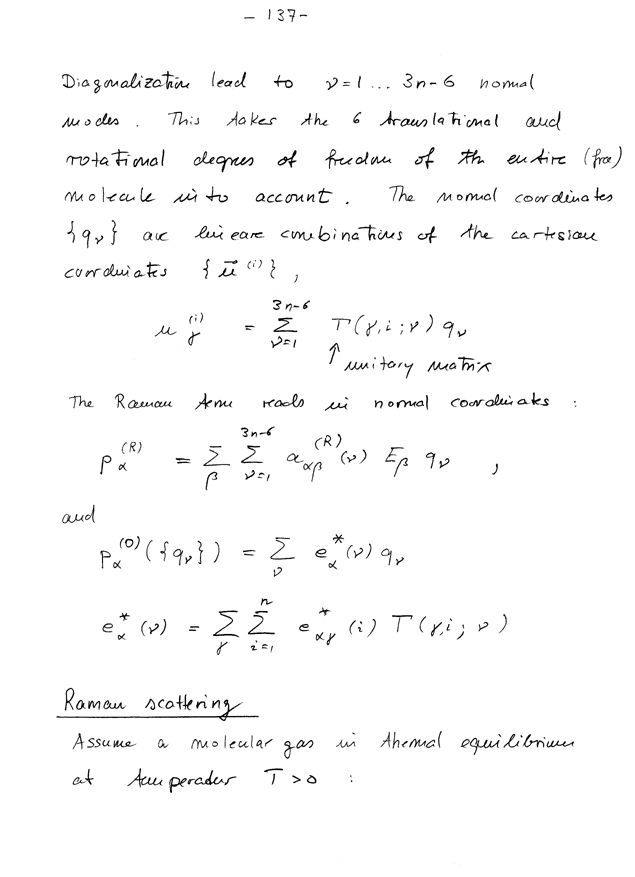 - 137-
Diagonalization lead to ν=1 ... 3n-6 normal
modes. This takes the 6 translational and
rotational degrees of freedom of the entire (free)
molecule into account. The normal coordinates
{q_ν} are linear combinations of the cartesian
coordinates { u⃗ ^(i) } ,
u_γ^(i) = Σ_{ν=1}^{3n-6} T(γ,i;ν) q_ν
↑ unitary matrix
The Raman term reads in normal coordinates :
p_α^(R) = Σ_β Σ_{ν=1}^{3n-6} a_{αβ}^(R)(ν) E_β q_ν ,
and
p_α^(0)({q_ν}) = Σ_ν e_α^*(ν) q_ν
e_α^*(ν) = Σ_γ Σ_{i=1}^{n} e_{αγ}^*(i) T(γ,i; ν)
Raman scattering
Assume a molecular gas in thermal equilibrium
at temperature T>0 :